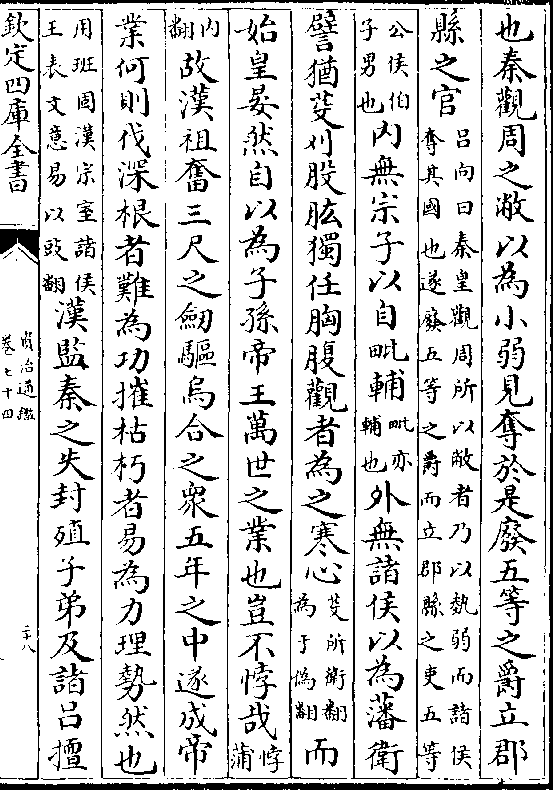 也秦觀周之敝以為小弱見奪於是廢五等之爵立郡
縣之官
呂向曰秦皇觀周所以敝者乃以埶弱而諸侯
奪其國也遂廢五等之爵而立郡縣之吏五等
公侯伯
子男也
内無宗子以自毗輔
毗亦
輔也
外無諸侯以為藩衛
譬猶芟刈股肱獨任胸腹觀者為之寒心
芟所銜翻
為于偽翻
而
始皇晏然自以為子孫帝王萬世之業也豈不悖哉
悖
蒲
内
翻
故漢祖奮三尺之劒驅烏合之衆五年之中遂成帝
業何則伐深根者難為功摧枯朽者易為力理勢然也
用班固漢宗室諸侯
王表文意易以豉翻
漢監秦之失封殖子弟及諸呂擅
欽定四庫全書
資治通鑑
卷七十四